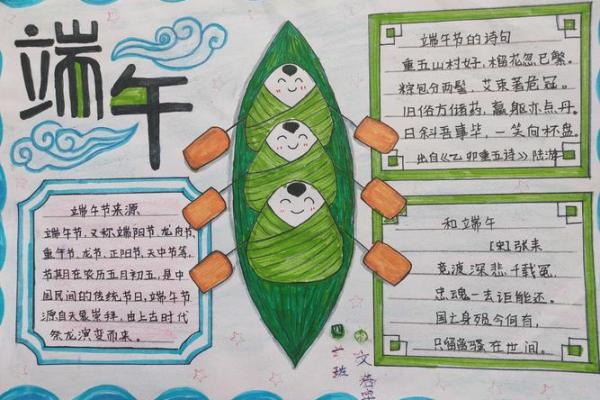 端午
端午节的诗句
重五山村好，榴花忽已繁。
粽包分两髻，艾束著危冠。
旧俗方储药，羸躯亦点丹。
日斜吾事毕，一笑向杯盘。
出自《乙卯重五诗》陆游
端午节来源
端午节，又称端阳节，龙舟节，
重午节，龙节，正阳节，天中节等，
节期在农历五月初五，是中
国民间的传统节日，端午节
源自天象崇拜，由上古时代
祭龙演变而来。
和端午
【宋】张耒
竞渡深悲千载冤，
忠魂一去讵能还。
国亡身殒今何有，
只留离骚在世间。